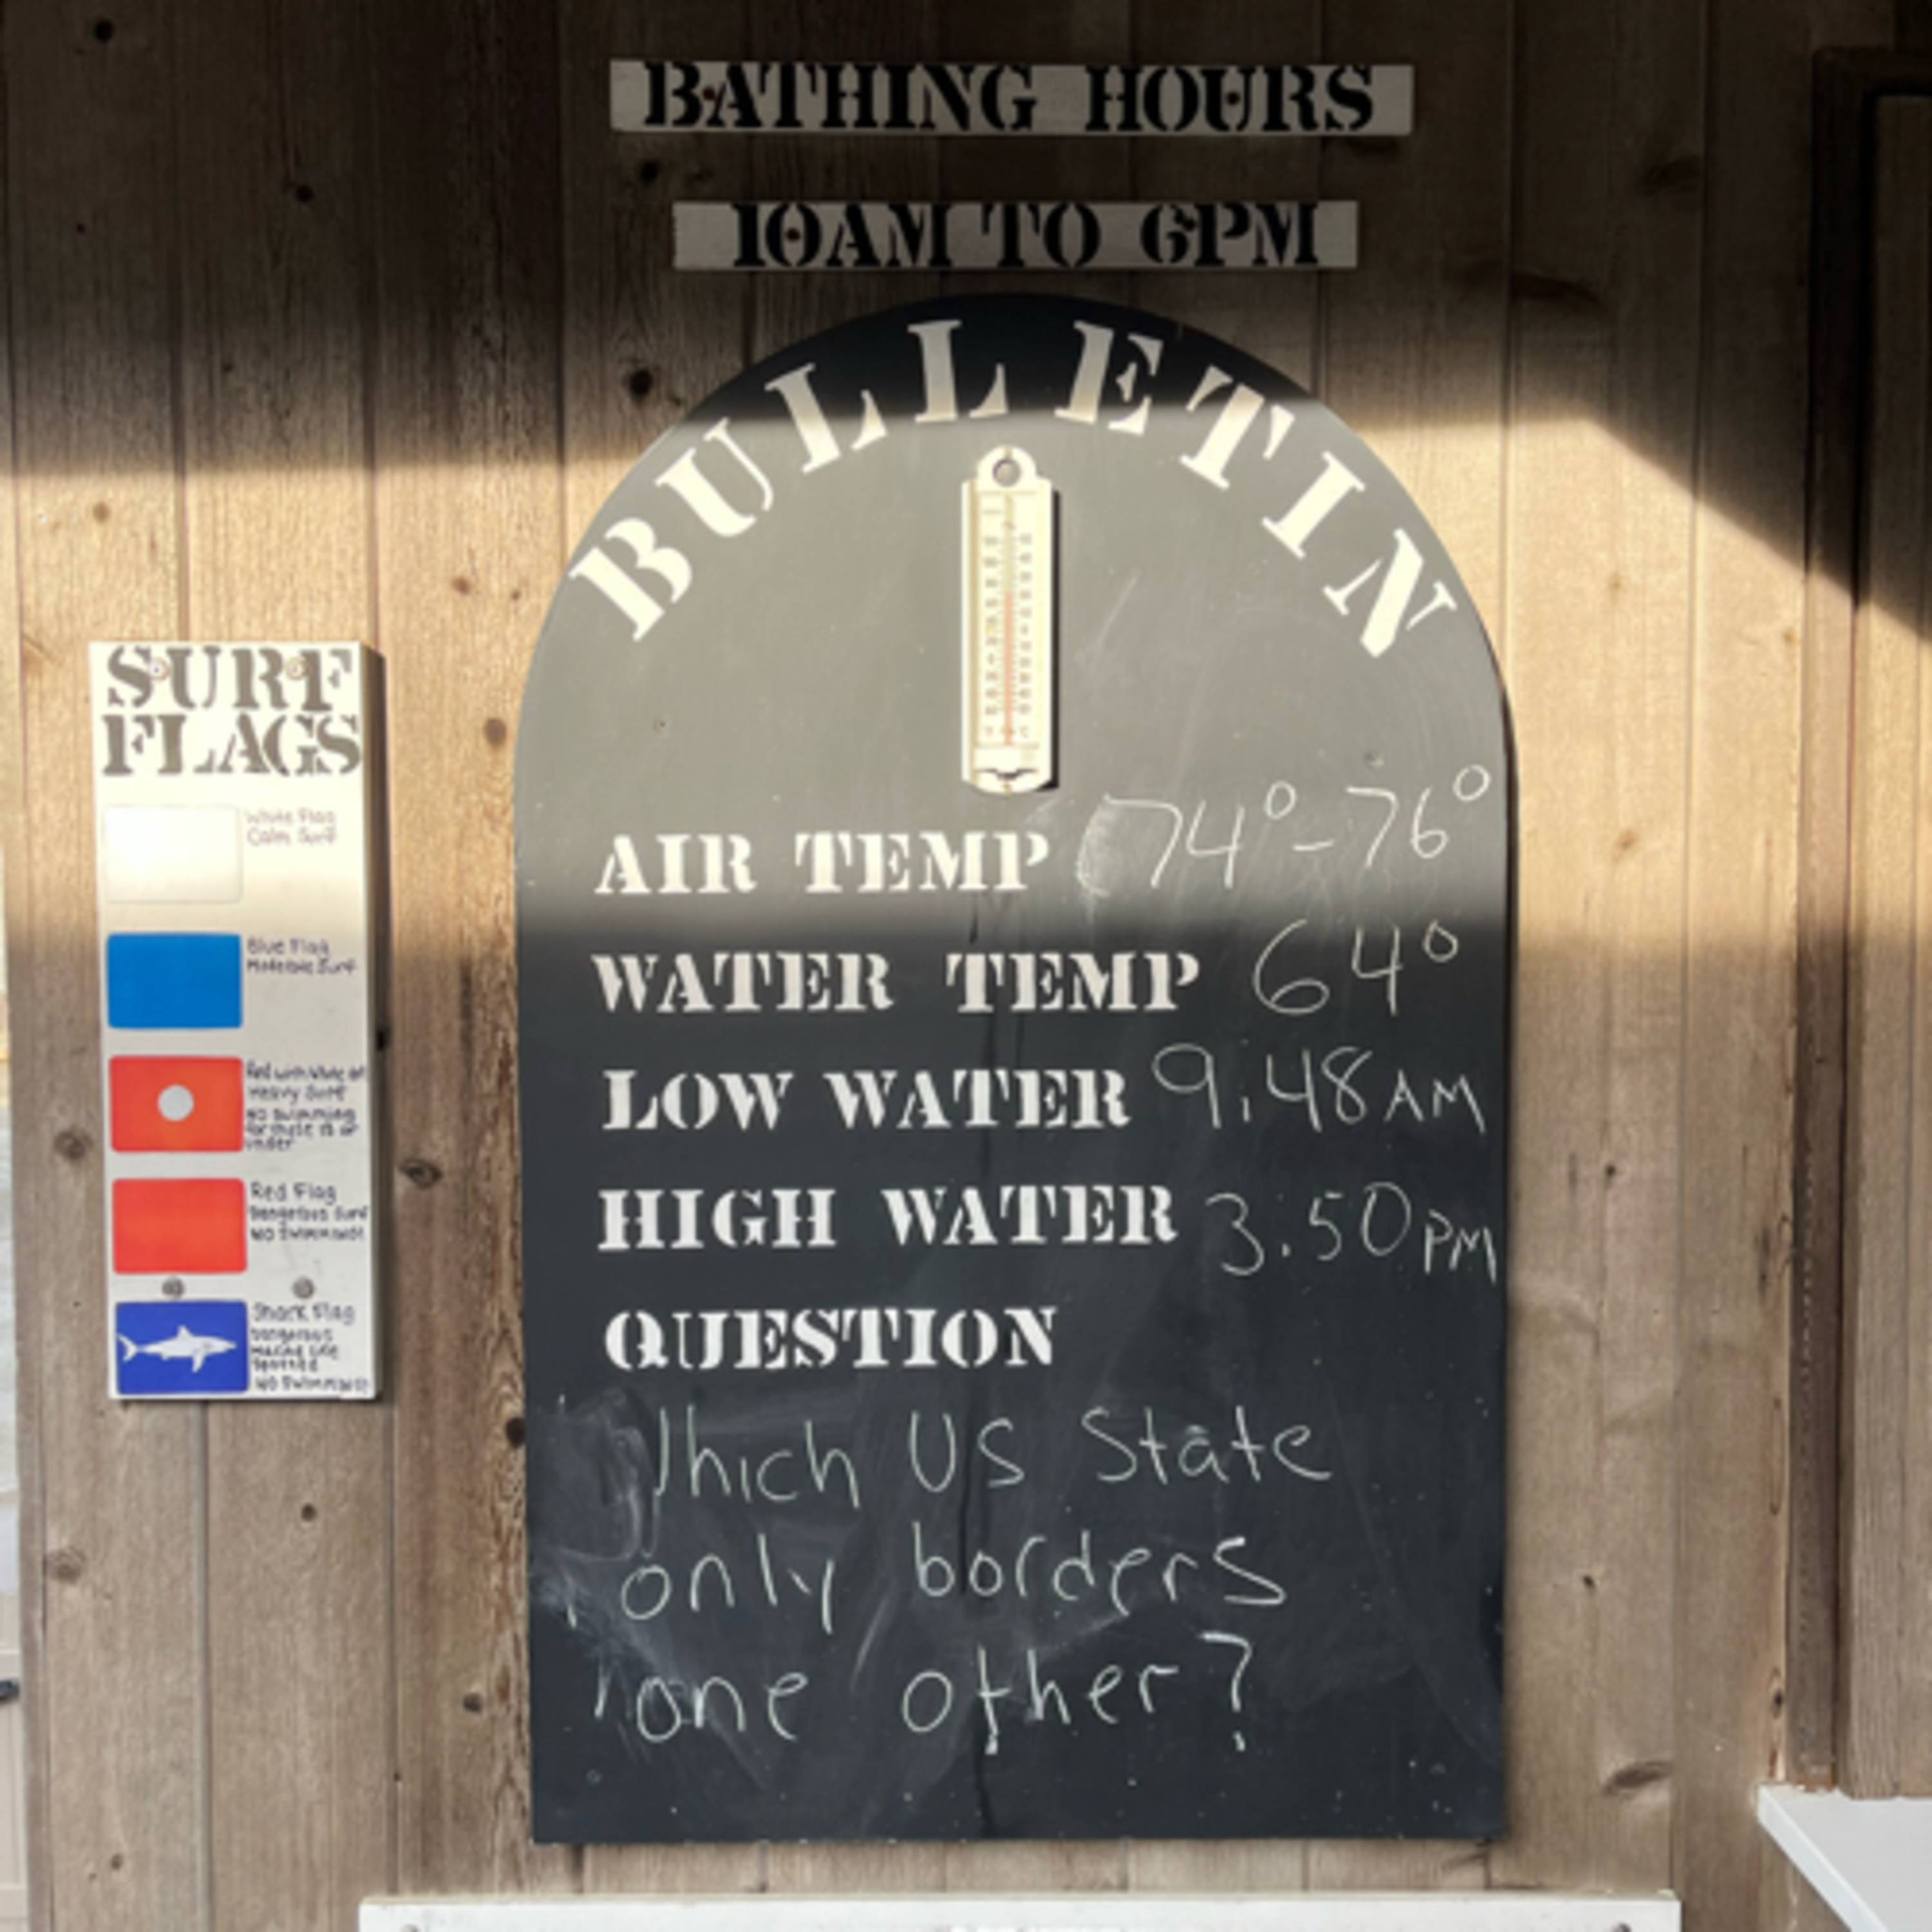 BATHING HOURS
10AM TO 6PM
BULLETIN
AIR TEMP 74°-76°
WATER TEMP 64°
LOW WATER 9:48 AM
HIGH WATER 3:50 PM
QUESTION
Which US State
only borders
one other?
SURF
FLAGS
White Flag
Calm Surf
Blue Flag
Moderate Surf
Red with White
Heavy Surf
NO Swimming
for those 13 or
under
Red Flag
Dangerous Surf
NO SWIMMING!
Shark Flag
Dangerous
Marine Life
Spotted
NO SWIMMING!